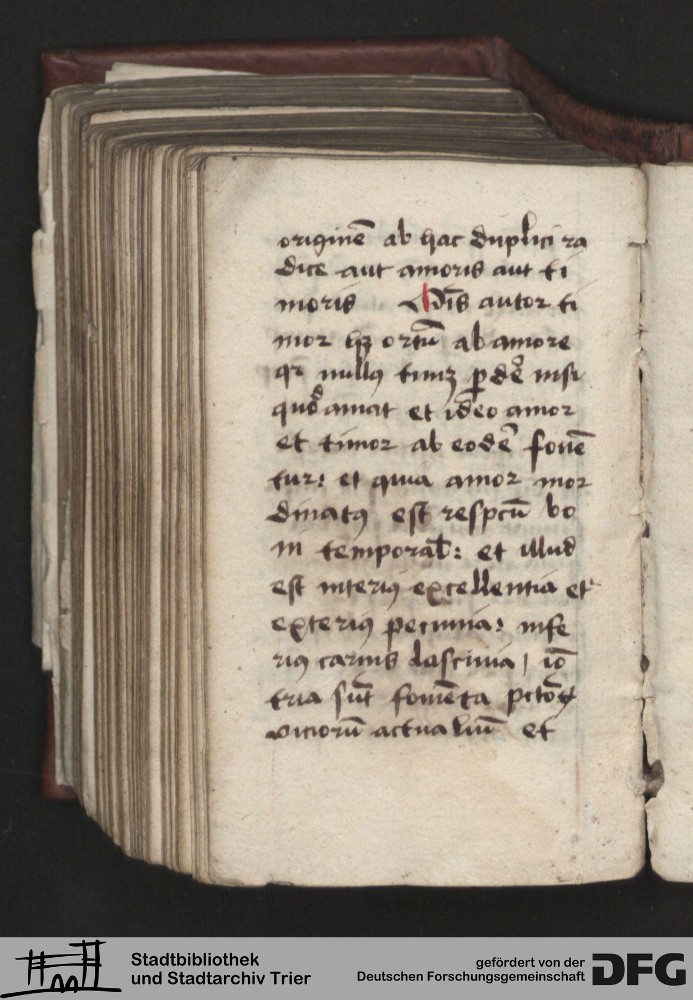 originē ab hac duplici ra
dice aut amoris aut ti
moris Uīs autor ti
mor hꝫ ortū ab amore
qr nullꝰ timꝫ ꝑdē nisi
quod amat et ideo amor
et timor ab eodē fouē
tur: et quia amor inor
dinatꝰ est respcū bo
ni temporal: et illud
est interiꝰ excellentia et
exteriꝰ pecunia: infe
riꝰ carnis lasciuia / iō
tria sūt fomēta pctōꝝ
viciorū actualiū et
Stadtbibliothek
und Stadtarchiv Trier
gefördert von der
Deutschen Forschungsgemeinschaft
DFG